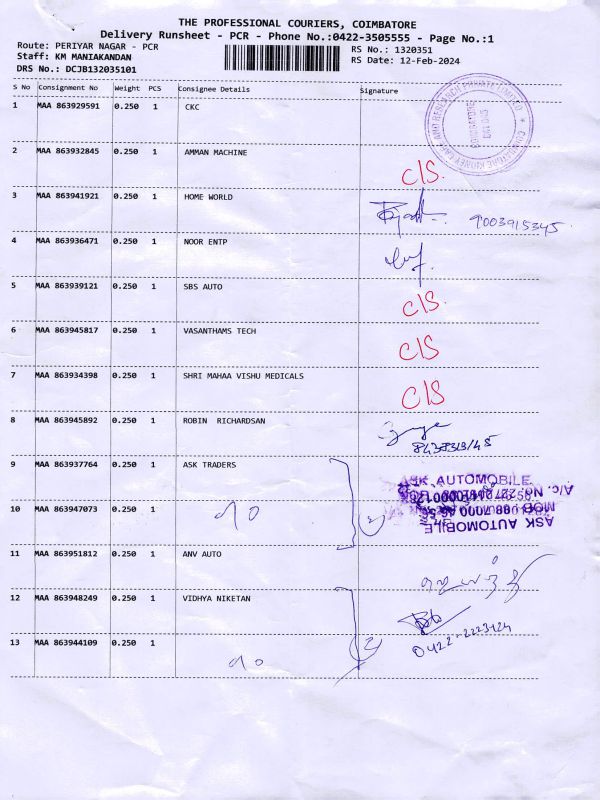 THE PROFESSIONAL COURIERS, COIMBATORE
Delivery Runsheet - PCR - Phone No.:0422-3505555 - Page No.:1
Route: PERIYAR NAGAR - PCR
RS No.: 1320351
Staff: KM MANIAKANDAN
RS Date: 12-Feb-2024
DRS No.: DCJB132035101
S No Consignment No Weight PCS Consignee Details Signature
1 MAA 863929591 0.250 1 CKC
2 MAA 863932845 0.250 1 AMMAN MACHINE
C/S
3 MAA 863941921 0.250 1 HOME WORLD
9003915345
4 MAA 863936471 0.250 1 NOOR ENTP
5 MAA 863939121 0.250 1 SBS AUTO
C/S
6 MAA 863945817 0.250 1 VASANTHAMS TECH
C/S
7 MAA 863934398 0.250 1 SHRI MAHAA VISHU MEDICALS
C/S
8 MAA 863945892 0.250 1 ROBIN RICHARDSAN
9 MAA 863937764 0.250 1 ASK TRADERS
ASK AUTOMOBILE
10 MAA 863947073 0.250 1
ASK AUTOMOBILE
11 MAA 863951812 0.250 1 ANV AUTO
12 MAA 863948249 0.250 1 VIDHYA NIKETAN
0422-2223424
13 MAA 863944109 0.250 1